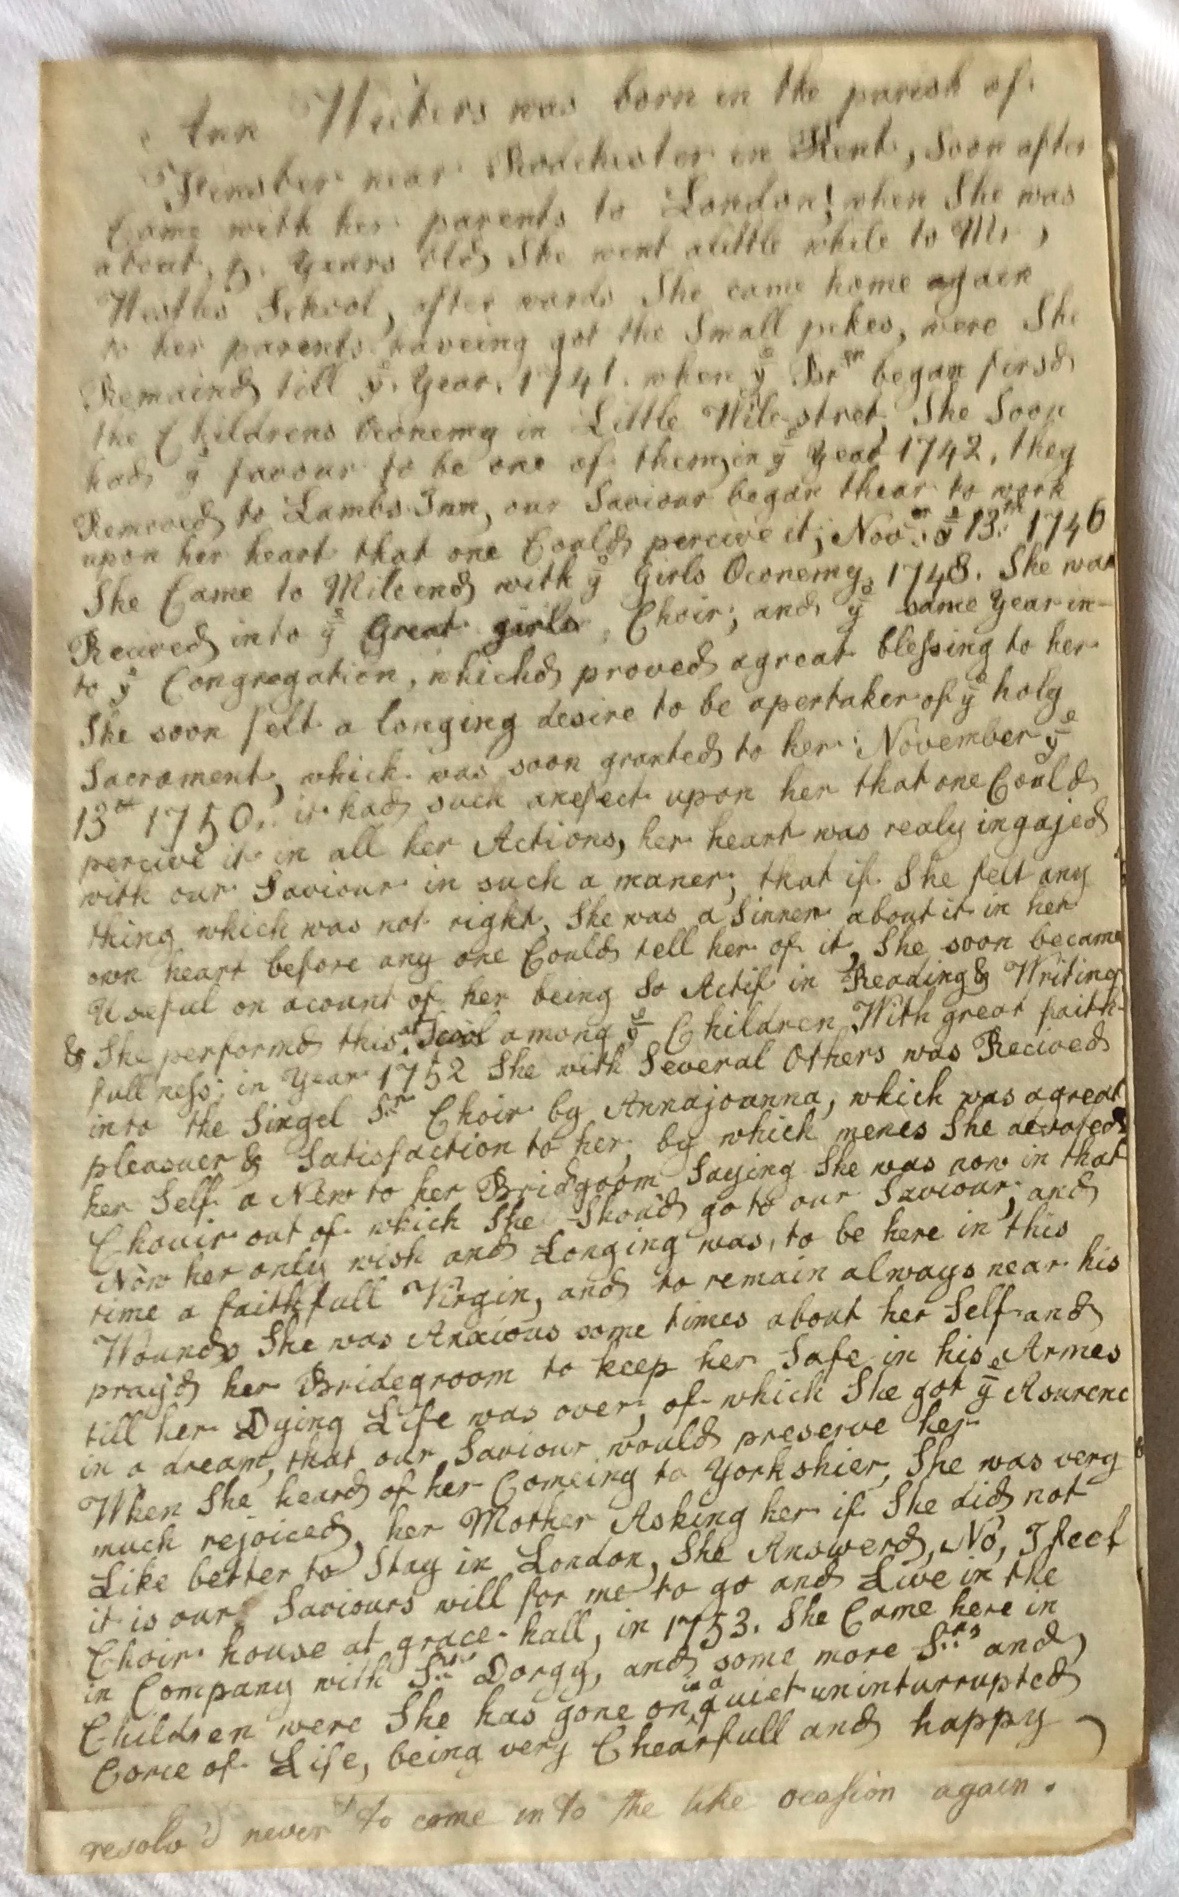 Ann Weekers was born in the parish of
Minster near Rochester in Kent, Soon after
Came with her parents to London, when She was
about, 5, Years Old She went alittle while to Mr,
Westlis School, after wards She came home again
to her parents haveing got the Small pokes, were She
Remaind till yͤ. Year. 1741. when yͤ Brⁿ began first
the Childrens Oconemy in Little Wile stret, She Soon
had yͤ favour to be one of them, in yͤ Year 1742, they
Removed to Lambs Inn, our Saviour began thear to work
upon her heart that one Could percive it; Novᵉʳ: yͤ 13:ᵗʰ 1746
She Came to Mileend with yͤ Girls Oconemy, 1748. She was
Recived into yͤ Great girls, Choir; and yͤ same Year in-
to yͤ Congregation, whichd proved agreat blessing to her
She soon felt a longing desire to be apertaker of yͤ holy
Sacrament, which was soon granted to her: November yͤ
13ᵗʰ 1750. it had such anefect upon her that one Could
percive it in all her Actions, her heart was realy ingajed
with our Saviour in such a maner; that if She felt any
thing which was not right, She was a Sinner about it in her
own heart before any one Could tell her of it, She soon became
Useful on acount of her being So Actif in Reading & Writing
& She performd this at Scool among yͤ Children With great faith-
fullness; in Year 1752 She with Several Others was Recived
into the Singel Sʳ Choir by Annajoanna, which was agreat
pleasuer & Satisfaction to her, by which menes She devoted
her Self a New to her Bridgoom Saying She was now in that
Chouir out of which She Shoud go to our Saviour; and
Now her only wish and Longing was, to be here in this
time a faithfull Virgin, and to remain always near his
Wounds She was Anxious some times about her Self and
pray'd her Bridegroom to keep her Safe in his Armes
till her Dying Life was over, of which She got yͤ Asurenc
in a dream, that our Saviour would preserve her
When She heard of her Comeing to Yorkshier, She was very
much rejoiced, her Mother Asking her if She did not
Like better to Stay in London, She Answerd, No, I feel
it is our Saviours will for me to go and Live in the
Choir house at grace-hall, in 1753. She Came here in
in Company with Sʳ Dorgy, and some more Sʳˢ and
Children were She has gone on in a quiet uninturrupted
Corce of Life, being very Chearfull and happy
resolv'd never to come in to the like ocasion again.